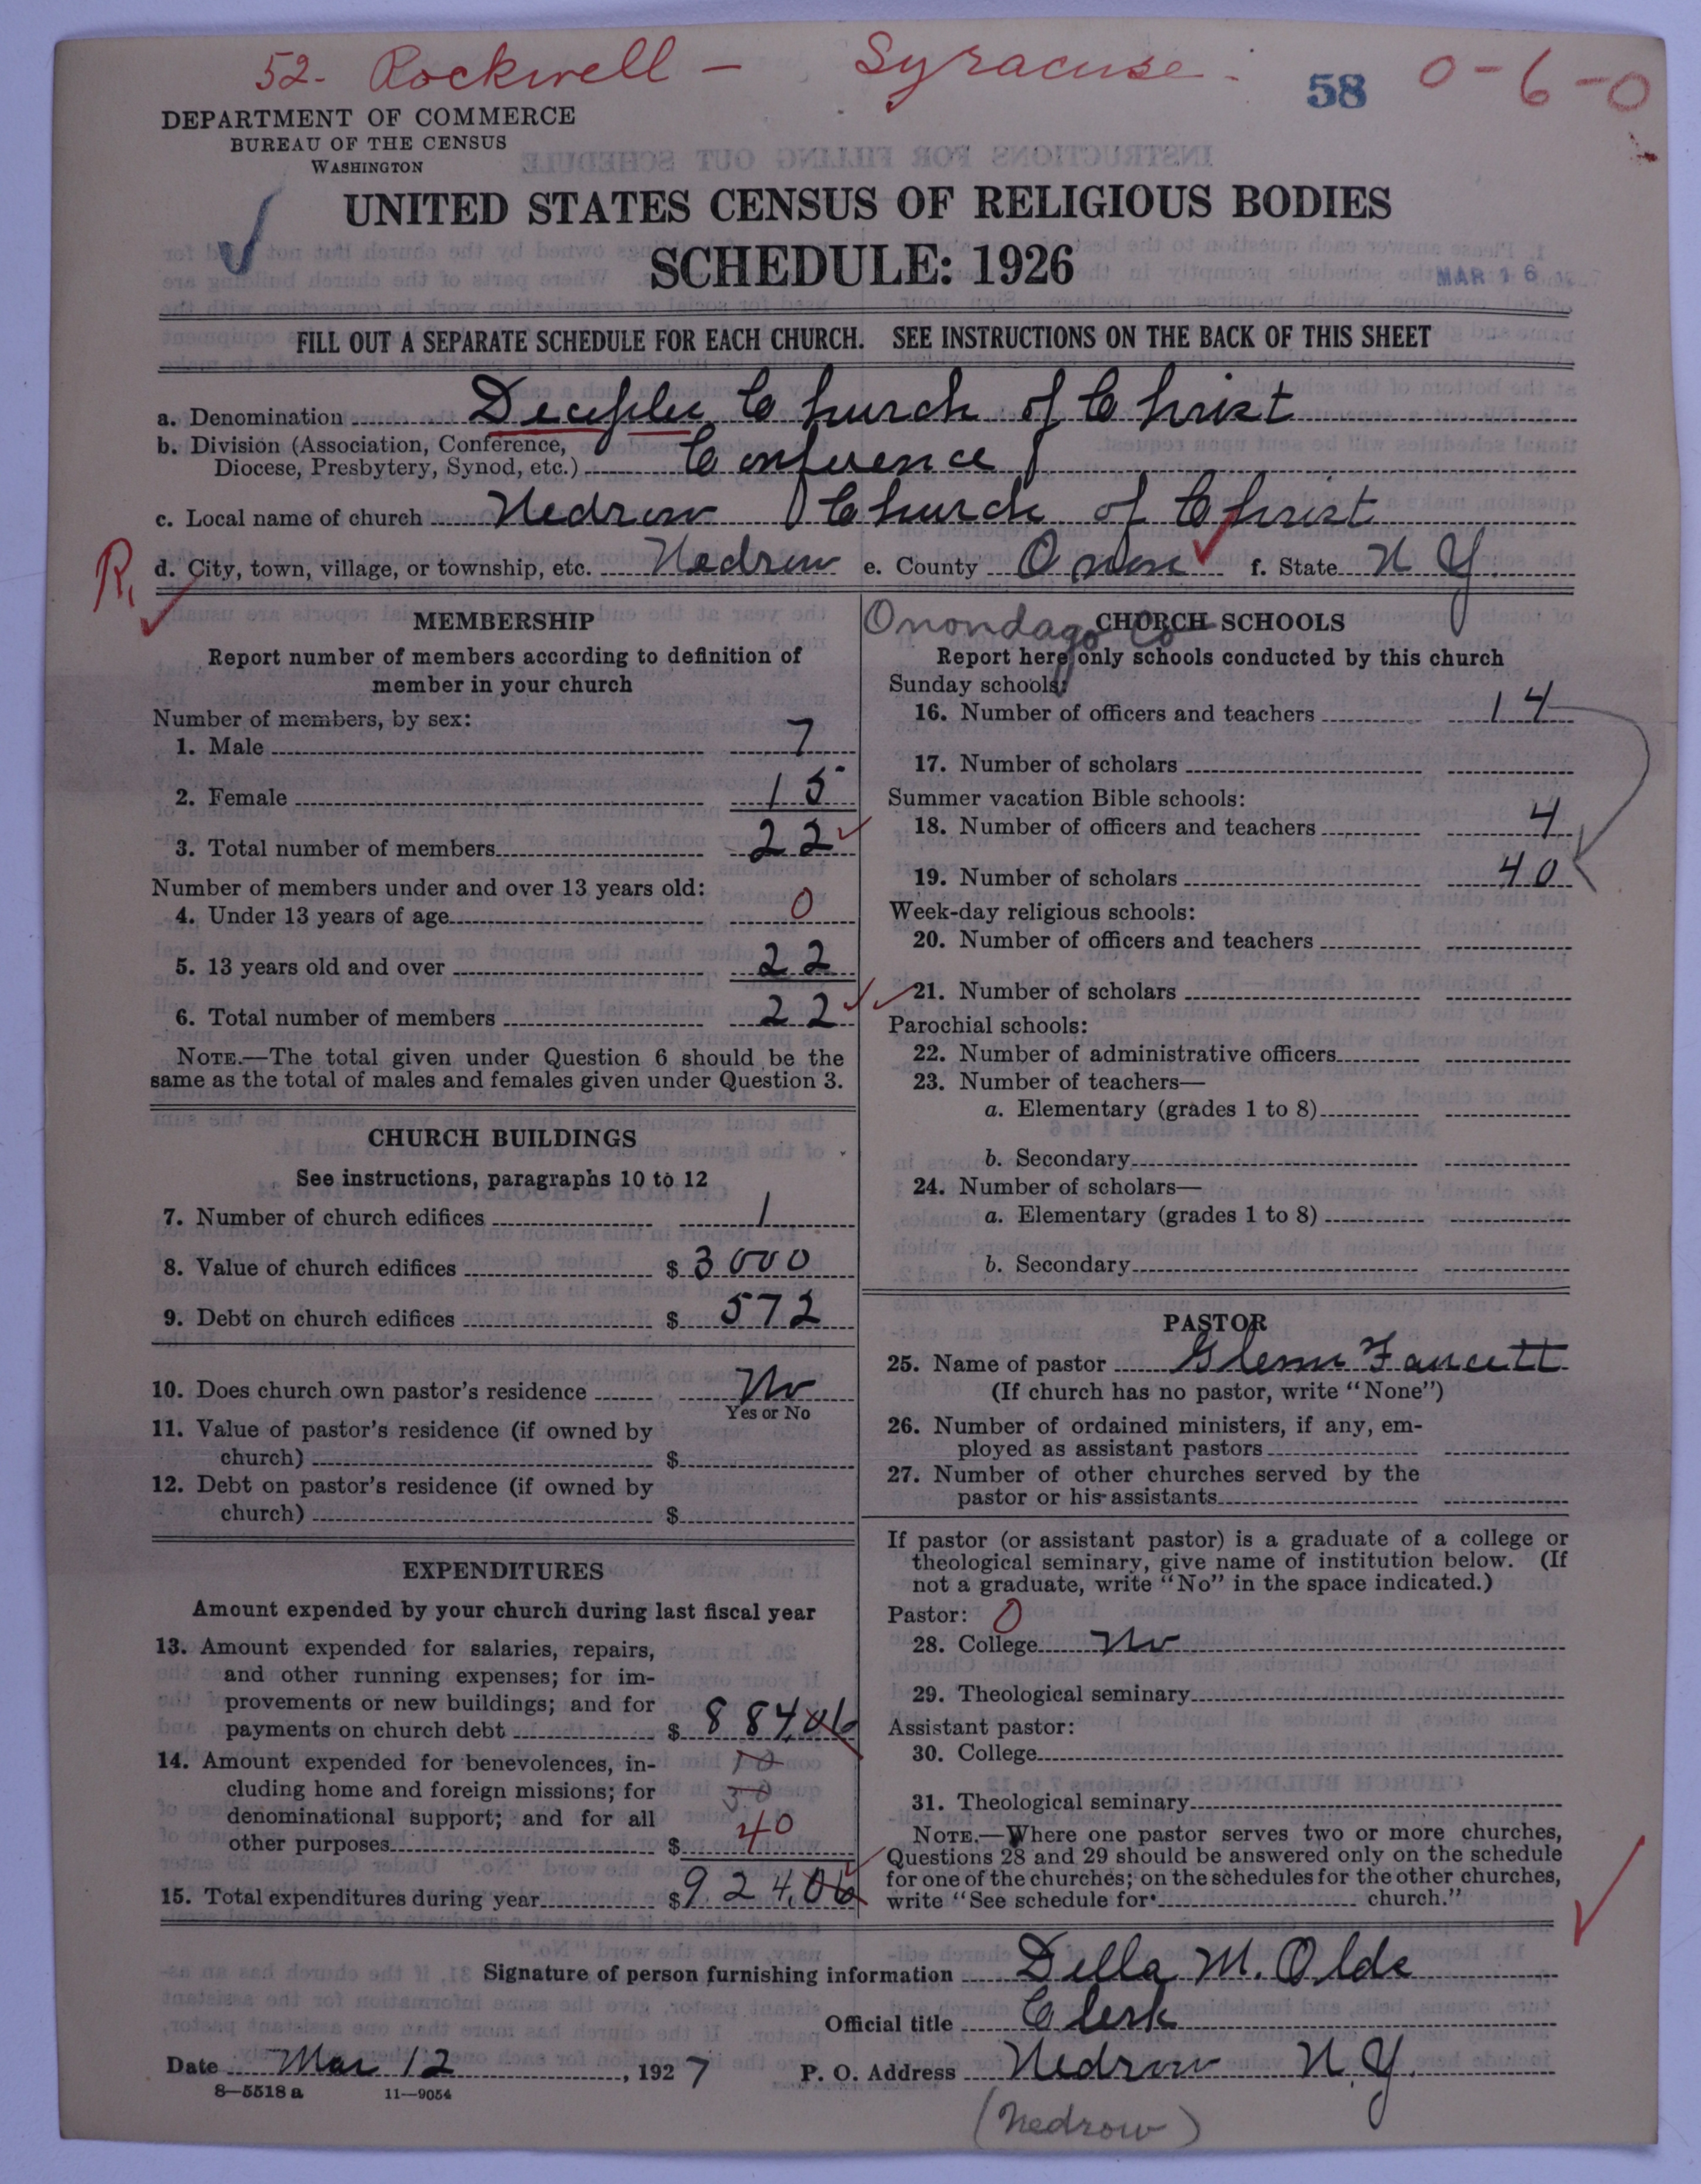 52- Rockwell - Syracuse.
58 0-6-0
DEPARTMENT OF COMMERCE
BUREAU OF THE CENSUS
WASHINGTON
UNITED STATES CENSUS OF RELIGIOUS BODIES
SCHEDULE: 1926
MAR 16
FILL OUT A SEPARATE SCHEDULE FOR EACH CHURCH. SEE INSTRUCTIONS ON THE BACK OF THIS SHEET
a. Denomination Deciples Church of Christ
b. Division (Association, Conference,
Diocese, Presbytery, Synod, etc.) Conference
c. Local name of church Nedrow Church of Christ
R, d. City, town, village, or township, etc. Nedrow e. County Onon f. State N Y
MEMBERSHIP
Report number of members according to definition of
member in your church
Number of members, by sex:
1. Male 7
2. Female 15
3. Total number of members 22
Number of members under and over 13 years old:
4. Under 13 years of age 0
5. 13 years old and over 22
6. Total number of members 22
NOTE.—The total given under Question 6 should be the
same as the total of males and females given under Question 3.
CHURCH BUILDINGS
See instructions, paragraphs 10 to 12
7. Number of church edifices 1
8. Value of church edifices $ 3000
9. Debt on church edifices $ 572
10. Does church own pastor's residence No
Yes or No
11. Value of pastor's residence (if owned by
church) $
12. Debt on pastor's residence (if owned by
church) $
EXPENDITURES
Amount expended by your church during last fiscal year
13. Amount expended for salaries, repairs,
and other running expenses; for im-
provements or new buildings; and for
payments on church debt $ 884.06
14. Amount expended for benevolences, in- 10
cluding home and foreign missions; for 30
denominational support; and for all
other purposes $ 40
15. Total expenditures during year $ 924.06
Onondago Co
CHURCH SCHOOLS
Report here only schools conducted by this church
Sunday schools:
16. Number of officers and teachers 14
17. Number of scholars
Summer vacation Bible schools:
18. Number of officers and teachers 4
19. Number of scholars 40
Week-day religious schools:
20. Number of officers and teachers
21. Number of scholars
Parochial schools:
22. Number of administrative officers
23. Number of teachers—
a. Elementary (grades 1 to 8)
b. Secondary
24. Number of scholars—
a. Elementary (grades 1 to 8)
b. Secondary
PASTOR
25. Name of pastor Glenn Faucett
(If church has no pastor, write "None")
26. Number of ordained ministers, if any, em-
ployed as assistant pastors
27. Number of other churches served by the
pastor or his assistants
If pastor (or assistant pastor) is a graduate of a college or
theological seminary, give name of institution below. (If
not a graduate, write "No" in the space indicated.)
Pastor: 0
28. College No
29. Theological seminary
Assistant pastor:
30. College
31. Theological seminary
NOTE.—Where one pastor serves two or more churches,
Questions 28 and 29 should be answered only on the schedule
for one of the churches; on the schedules for the other churches,
write "See schedule for church."
Signature of person furnishing information Della M. Olds
Official title Clerk
Date Mar 12, 1927 P. O. Address Nedrow N.Y.
8—5518 a 11—9054
(Nedrow)